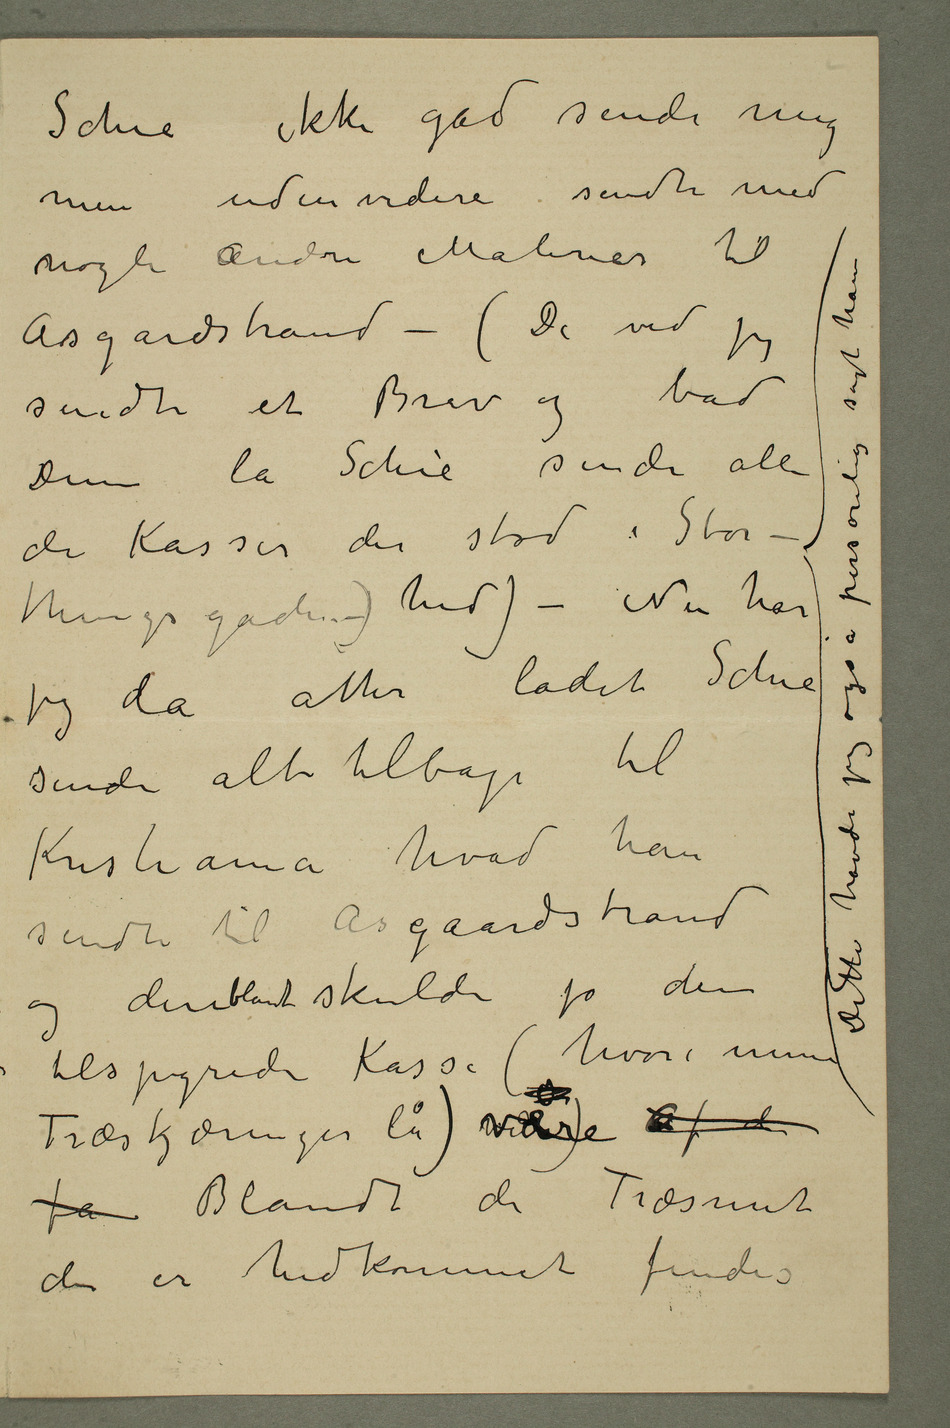 Schie ikke gad sende mig
men uden videre sendte med
nogle andre Malerier til
Åsgardstrand – ( De ved jeg
sendte et Brev og bad
Dem la Schie sende alle
de Kasser der stod i Stor–
thingsgaden–) hid) – Nu har
jeg da atter ladet Schie
sende alt tilbage til
Kristiania hvad han
sendte til Asgaardstrand
og deriblandt skulde jo den
tilspigrede Kasse ( hvori mine
Træskjæringer lå) være Af de
fa Blandt de Træsnit
der er hidkommet findes
Dette havde jeg også personlig sagt ham